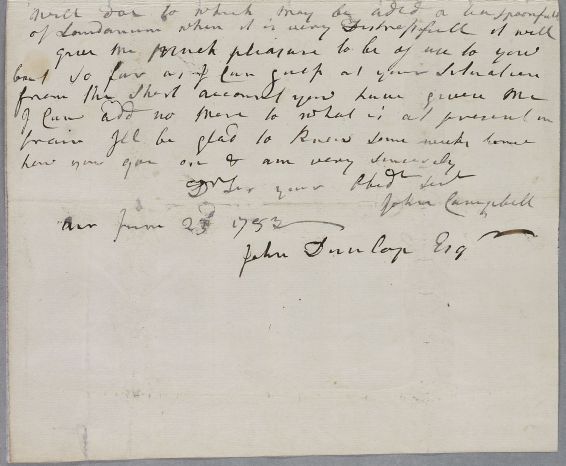 will doe to which may be aded a teaspoonfull
of Loudanum when it is very Distressfull it will
give me Much pleasure to be of use to you
but so far as I Can guess at your Situation
from the Short account you have given me
I Can add no More to what is at present in
train Ill be glad to know some weeks hence
how you goe on & am very Sincerely
Dr Sir your Obedt Servt
John Campbell
Air June 23 1752
John Dunlop Esqr